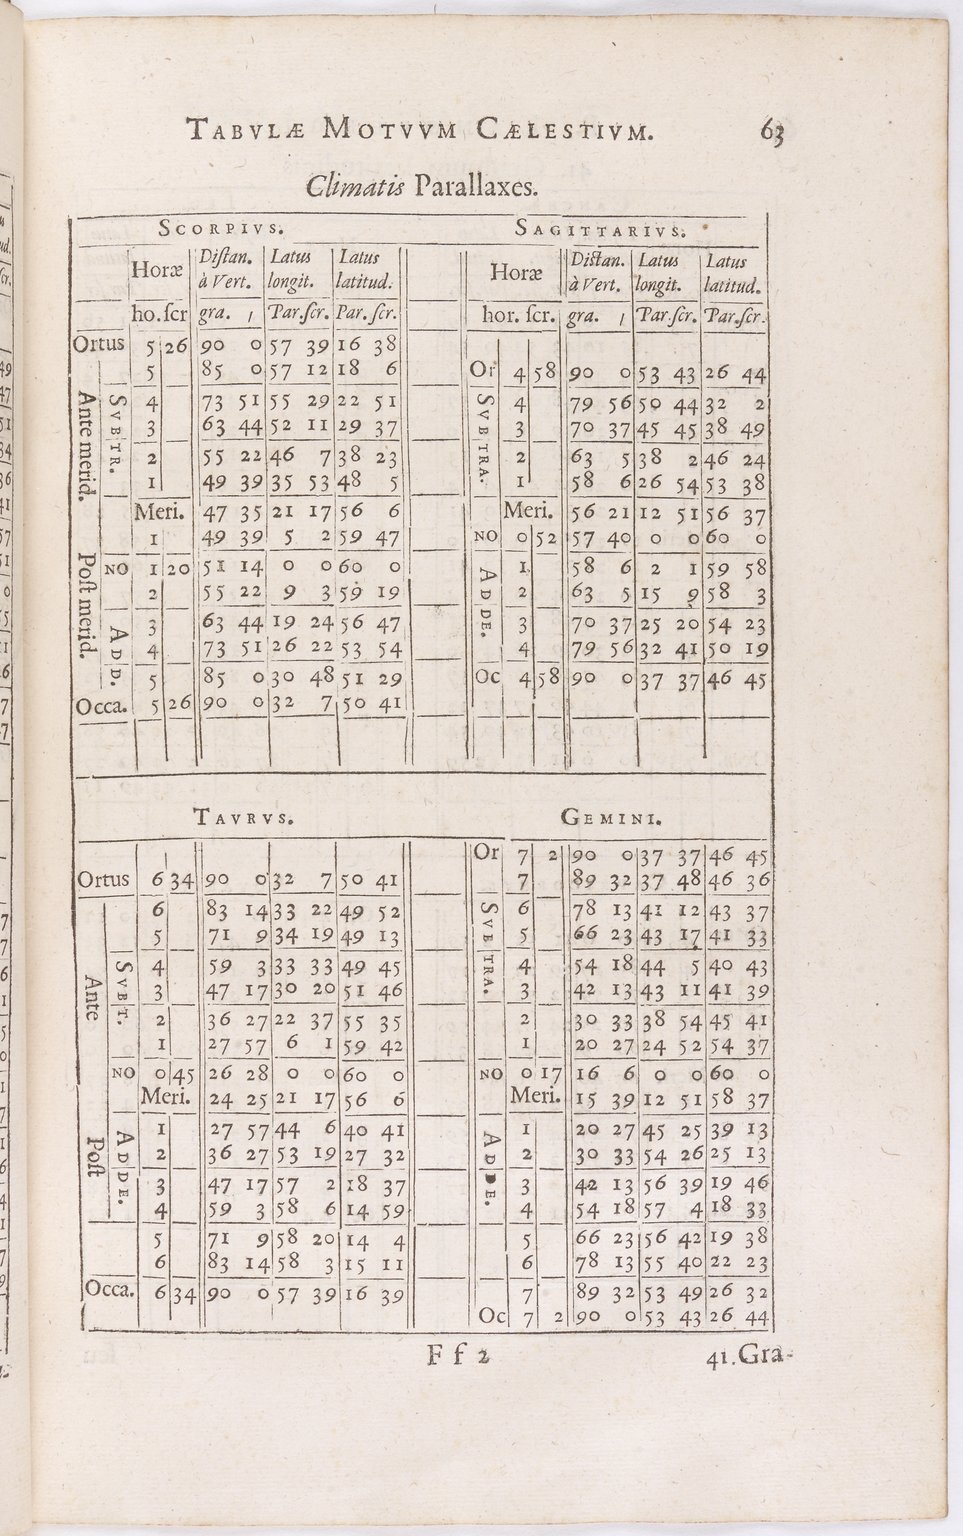 TABVLÆ MOTVVM CÆLESTIVM. 63
Climatis Parallaxes.
SCORPIVS. SAGITTARIVS.
Horæ Distan. à Vert. Latus longit. Latus latitud. Horæ Distan. à Vert. Latus longit. Latus latitud.
ho. scr gra. ı Par. scr. Par. scr. hor. scr. gra. ı Par. scr. Par. scr.
Ortus 5 26 90 0 57 39 16 38
5 85 0 57 12 18 6 Or 4 58 90 0 53 43 26 44
Ante merid. SVBTR. 4 73 51 55 29 22 51 SVBTRA. 4 79 56 50 44 32 2
3 63 44 52 11 29 37 3 70 37 45 45 38 49
2 55 22 46 7 38 23 2 63 5 38 2 46 24
1 49 39 35 53 48 5 1 58 6 26 54 53 38
Meri. 47 35 21 17 56 6 Meri. 56 21 12 51 56 37
1 49 39 5 2 59 47 NO 0 52 57 40 0 0 60 0
Post merid. NO 1 20 51 14 0 0 60 0 ADDE. 1 58 6 2 1 59 58
2 55 22 9 3 59 19 2 63 5 15 9 58 3
ADD. 3 63 44 19 24 56 47 3 70 37 25 20 54 23
4 73 51 26 22 53 54 4 79 56 32 41 50 19
5 85 0 30 48 51 29 Oc 4 58 90 0 37 37 46 45
Occa. 5 26 90 0 32 7 50 41
TAVRVS. GEMINI.
Or 7 2 90 0 37 37 46 45
Ortus 6 34 90 0 32 7 50 41 7 89 32 37 48 46 36
6 83 14 33 22 49 52 SVBTRA. 6 78 13 41 12 43 37
5 71 9 34 19 49 13 5 66 23 43 17 41 33
Ante SVBT. 4 59 3 33 33 49 45 4 54 18 44 5 40 43
3 47 17 30 20 51 46 3 42 13 43 11 41 39
2 36 27 22 37 55 35 2 30 33 38 54 45 41
1 27 57 6 1 59 42 1 20 27 24 52 54 37
NO 0 45 26 28 0 0 60 0 NO 0 17 16 6 0 0 60 0
Meri. 24 25 21 17 56 6 Meri. 15 39 12 51 58 37
Post ADDE. 1 27 57 44 6 40 41 ADDE. 1 20 27 45 25 39 13
2 36 27 53 19 27 32 2 30 33 54 26 25 13
3 47 17 57 2 18 37 3 42 13 56 39 19 46
4 59 3 58 6 14 59 4 54 18 57 4 18 33
5 71 9 58 20 14 4 5 66 23 56 42 19 38
6 83 14 58 3 15 11 6 78 13 55 40 22 23
Occa. 6 34 90 0 57 39 16 39 7 89 32 53 49 26 32
Oc 7 2 90 0 53 43 26 44
F f 2 41. Gra-